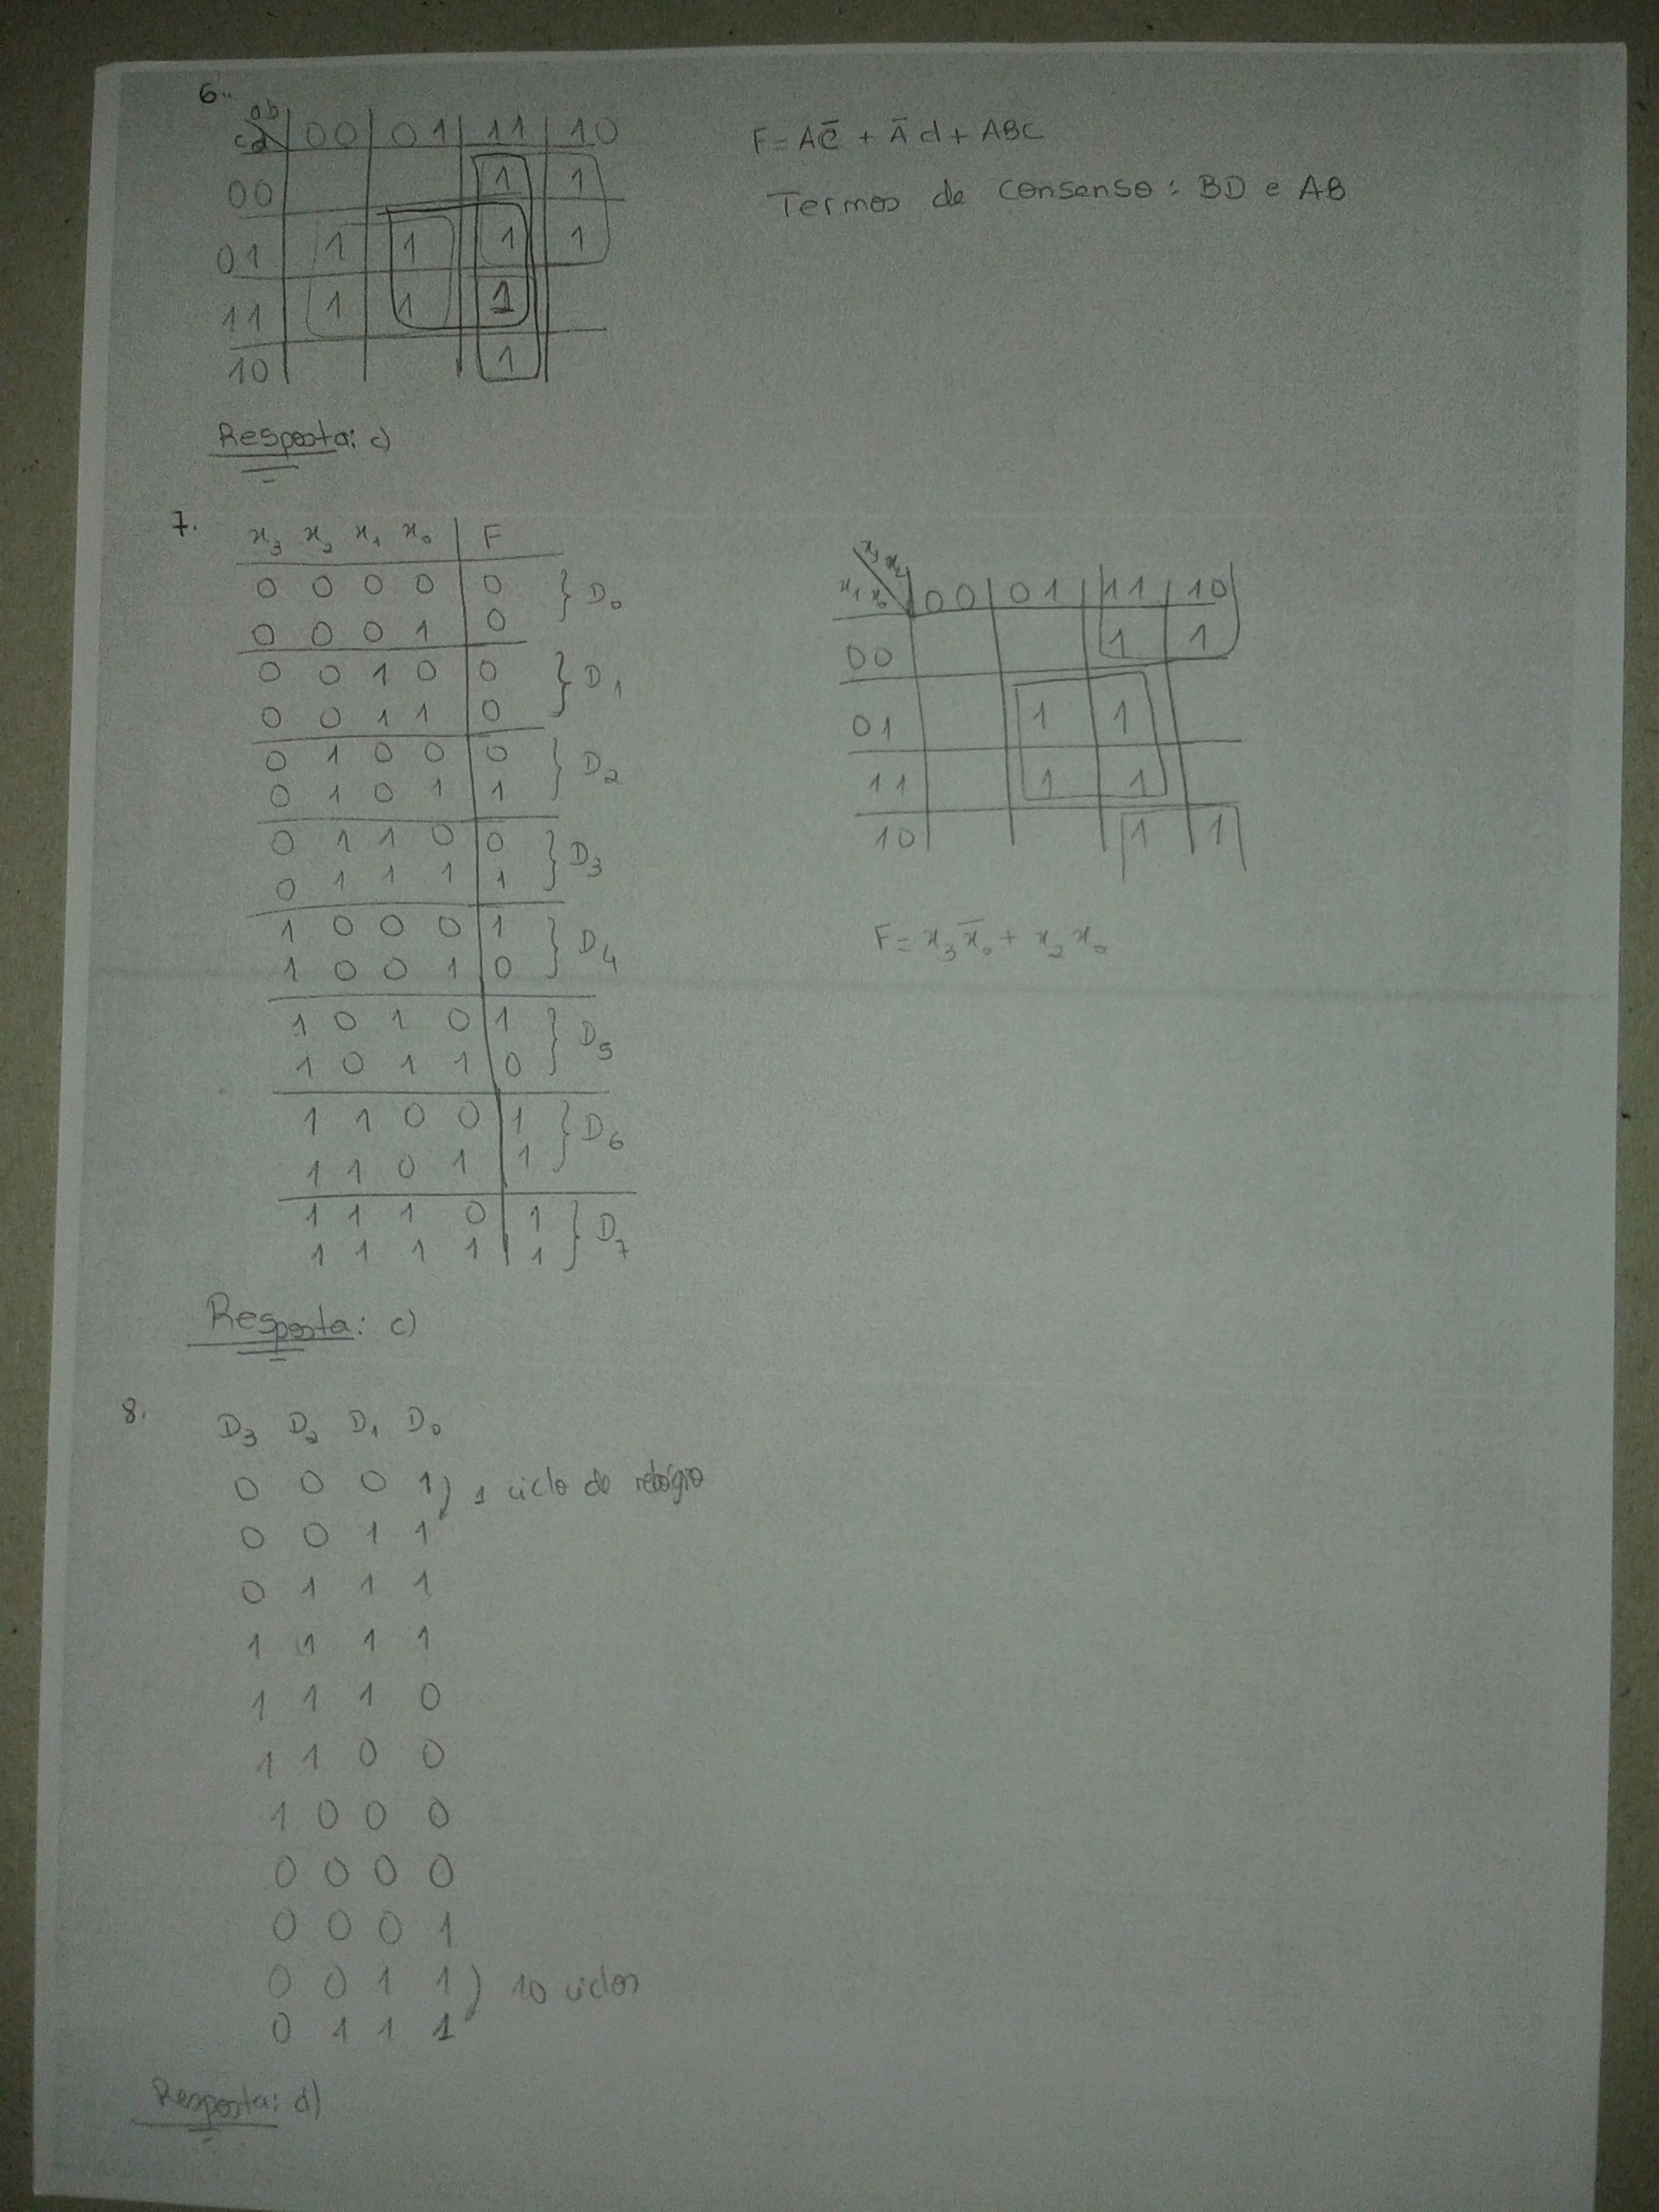 6.
ab
cd 00 01 11 10
00 1 1
01 1 1 1 1
11 1 1 1
10 1
F = AC̄ + Ād + ABC
Termos de consenso: BD e AB
Resposta: c)
7.
x₃ x₂ x₁ x₀ F
0 0 0 0 0 } D₀
0 0 0 1 0
0 0 1 0 0 } D₁
0 0 1 1 0
0 1 0 0 0 } D₂
0 1 0 1 1
0 1 1 0 0 } D₃
0 1 1 1 1
1 0 0 0 1 } D₄
1 0 0 1 0
1 0 1 0 1 } D₅
1 0 1 1 0
1 1 0 0 1 } D₆
1 1 0 1 1
1 1 1 0 1 } D₇
1 1 1 1 1
x₃ x₂
x₁ x₀ 00 01 11 10
00 1 1
01 1 1
11 1 1
10 1 1
F = x₃ x̄₀ + x₂ x₀
Resposta: c)
8.
D₃ D₂ D₁ D₀
0 0 0 1 ) 1 ciclo de relógio
0 0 1 1
0 1 1 1
1 1 1 1
1 1 1 0
1 1 0 0
1 0 0 0
0 0 0 0
0 0 0 1
0 0 1 1 ) 10 ciclos
0 1 1 1
Resposta: d)